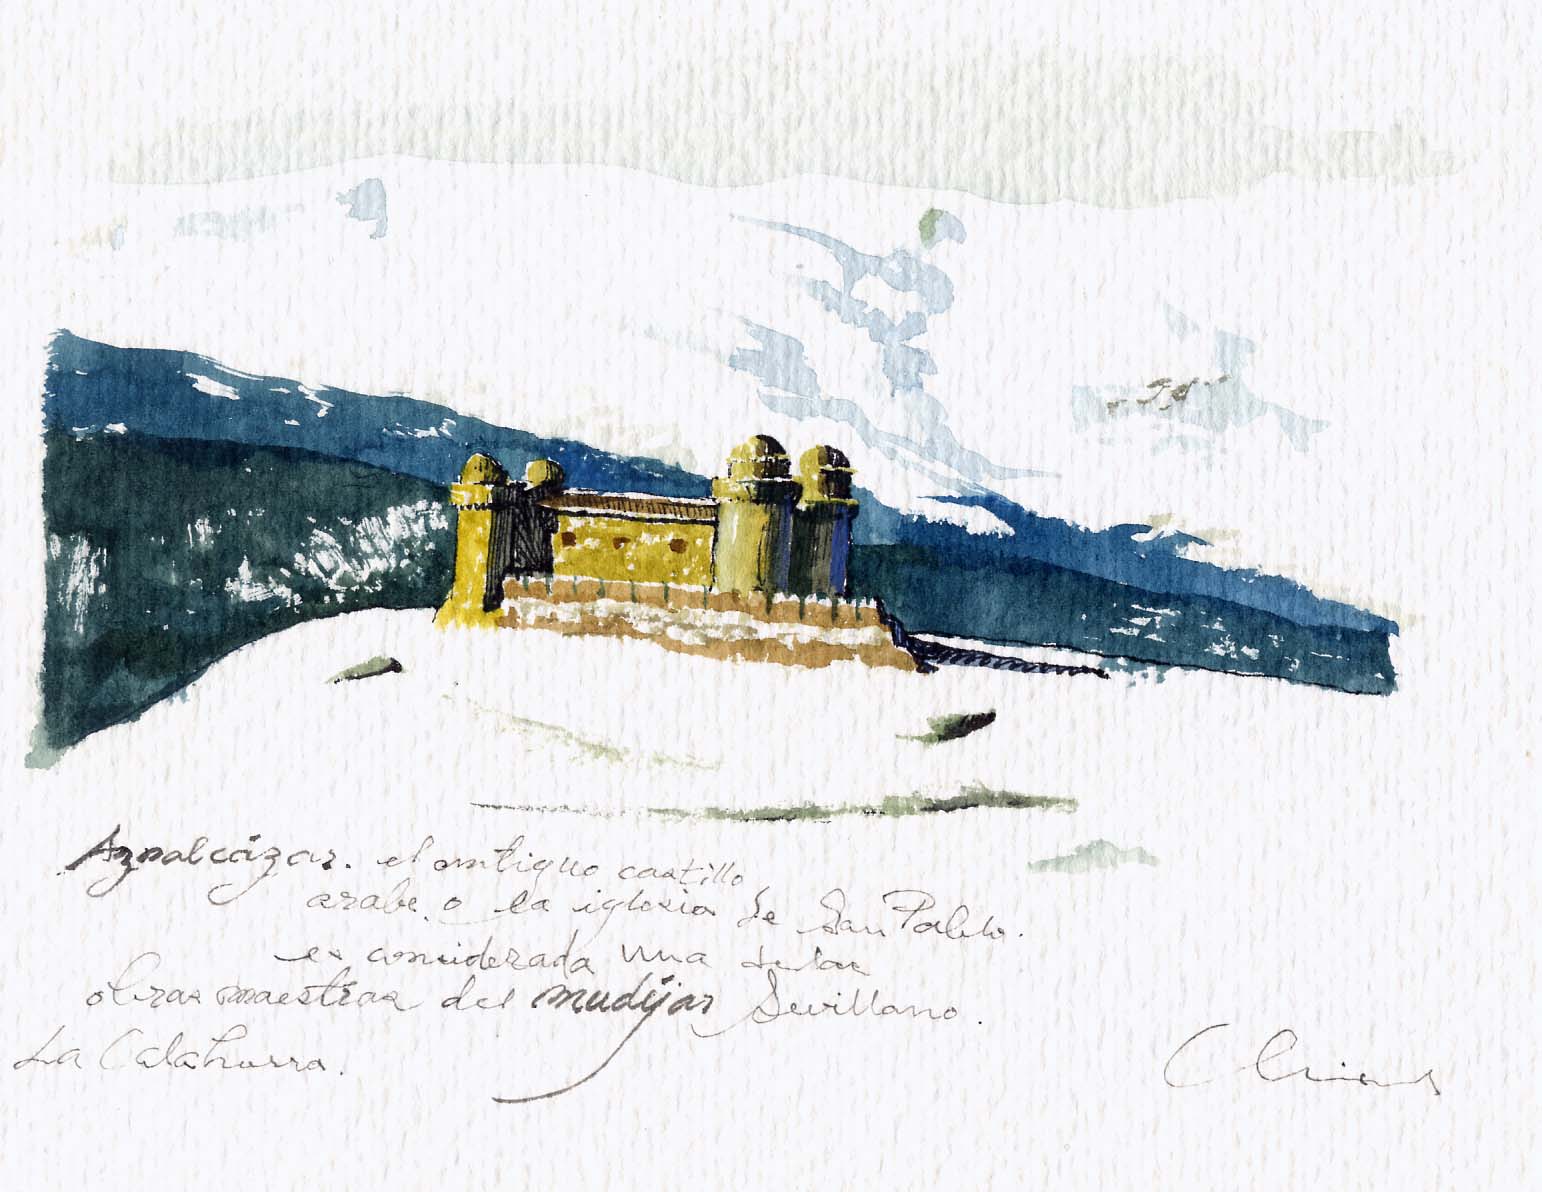 Aznalcázar. el antiguo castillo
arabe. o la iglesia de San Pablo.
es considerada una de las
obras maestras del mudéjar Sevillano.
La Calahorra.